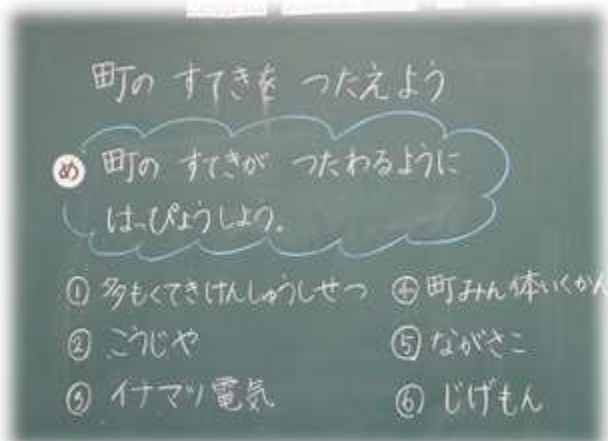 町の すてきを つたえよう
め 町の すてきが つたわるように
はっぴょうしよう。
① 多もくてきけんしゅうしせつ
② こうじや
③ イナマツ電気
④ 町みん体いくかん
⑤ ながさこ
⑥ じげもん